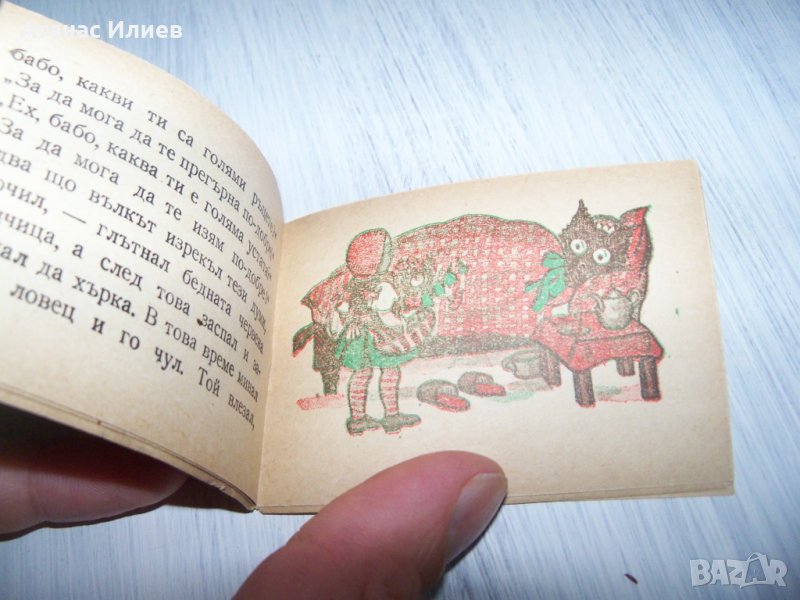 Атанас Илиев
бабо, какви ти са големи
„За да мога да те прегърна по-добре!“
„Ех, бабо, каква ти е голяма устата!“
За да мога да те изям по-добре!“
два що вълкът изрекъл тези думи,
чил, — глътнал бедната червена
чица, а след това заспал и за-
ал да хърка. В това време минал
ловец и го чул. Той влезал,
BAZAR